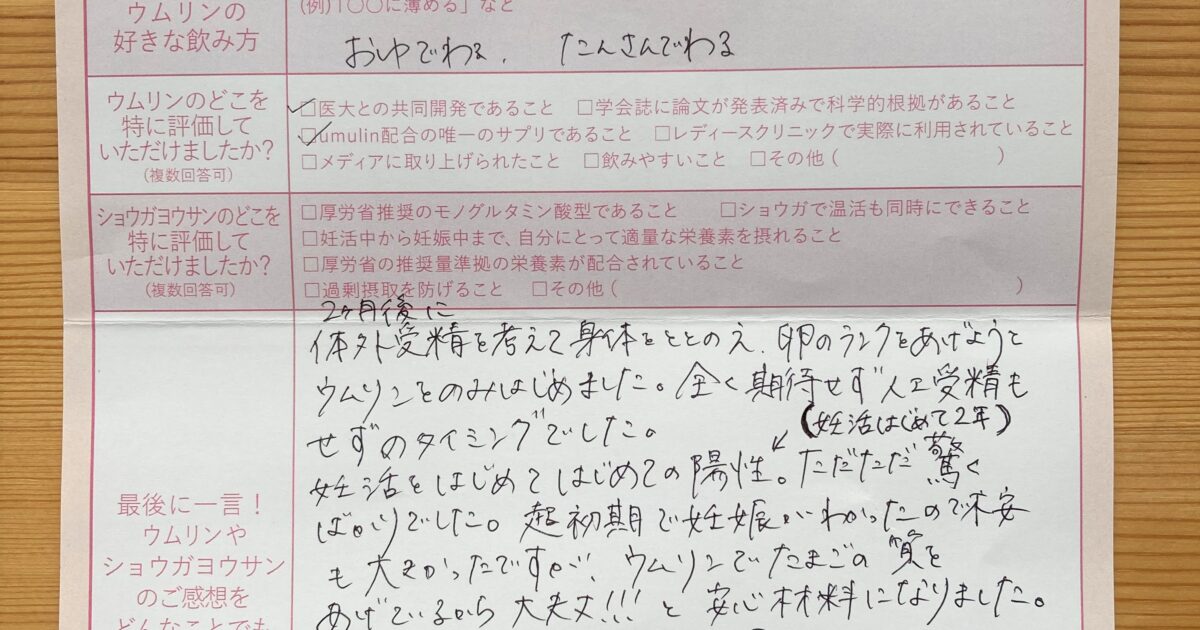 (例)「〇〇に薄める」など
ウムリンの
好きな飲み方
おゆでわる. たんさんでわる
ウムリンのどこを
特に評価して
いただけましたか?
(複数回答可)
□医大との共同開発であること □学会誌に論文が発表済みで科学的根拠があること
□umulin配合の唯一のサプリであること □レディースクリニックで実際に利用されていること
□メディアに取り上げられたこと □飲みやすいこと □その他 ( )
ショウガヨウサンのどこを
特に評価して
いただけましたか?
(複数回答可)
□厚労省推奨のモノグルタミン酸型であること □ショウガで温活も同時にできること
□妊活中から妊娠中まで、自分にとって適量な栄養素を摂れること
□厚労省の推奨量準拠の栄養素が配合されていること
□過剰摂取を防げること □その他 ( )
最後に一言!
ウムリンや
ショウガヨウサン
のご感想を
どんなことでも
2ヶ月後に
体外受精を考えて身体をととのえ、卵のランクをあげようと
ウムリンをのみはじめました。全く期待せず人工受精も
せずのタイミングでしたでした。
(妊活はじめて2年)
妊活をはじめてはじめての陽性。ただただ驚く
ばかりでした。超初期で妊娠がわかったので不安
も大きかったですが、ウムリンでたまごの質を
あげているから大丈夫!!!と安心材料になりました。